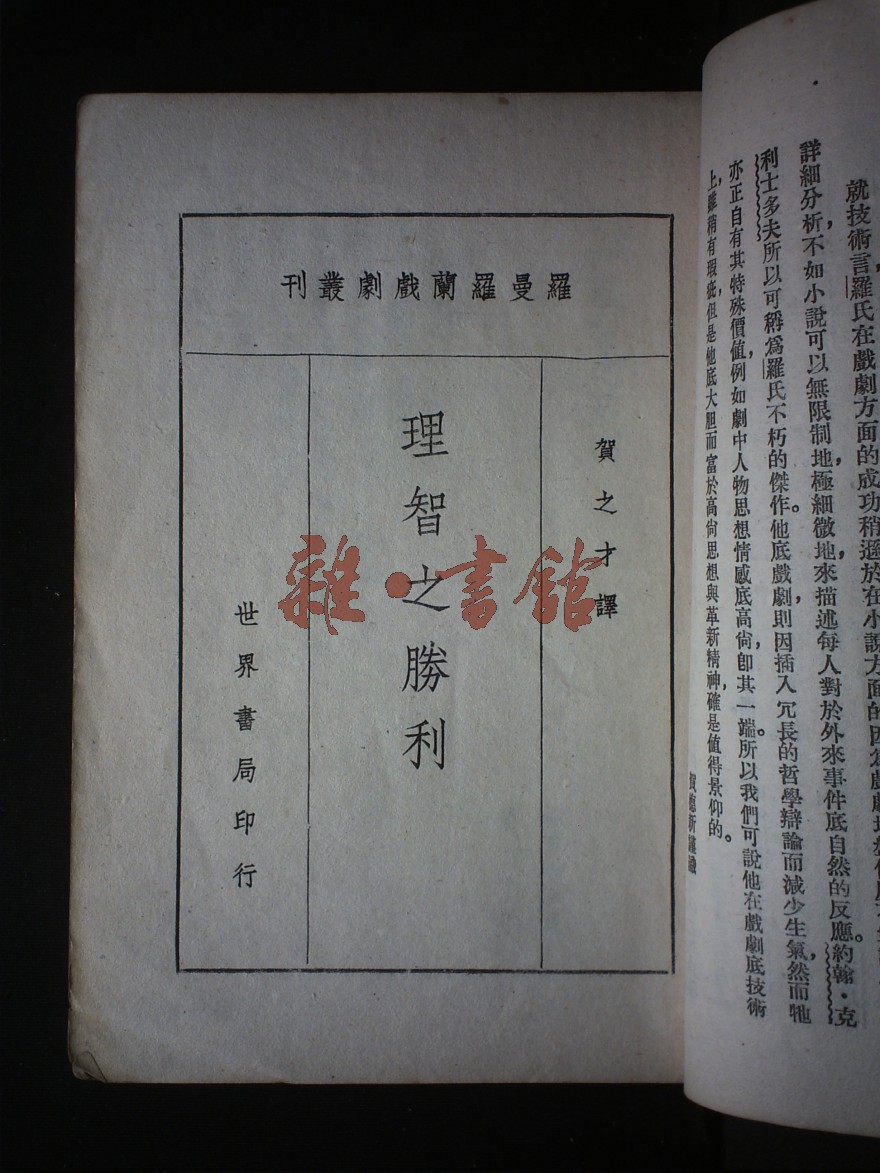 就技術言，羅氏在戲劇方面的成功稍遜於在小說方面的因爲戲劇
詳細分析，不如小說可以無限制地極細微地來描述每人對於外來事件底自然的反應。約翰・克
利士多夫所以可稱爲羅氏不朽的傑作。他底戲劇則因插入冗長的哲學辯論而減少生氣，然而牠
亦正自有其特殊價值，例如劇中人物思想情感底高尙，卽其一端。所以我們可說他在戲劇底技術
上，雖稍有瑕疵，但是他底大胆而富於高尙思想與革新精神，確是值得景仰的。
賀德新謹識
羅曼羅蘭戲劇叢刊
賀之才譯
理智之勝利
世界書局印行
雜・書館